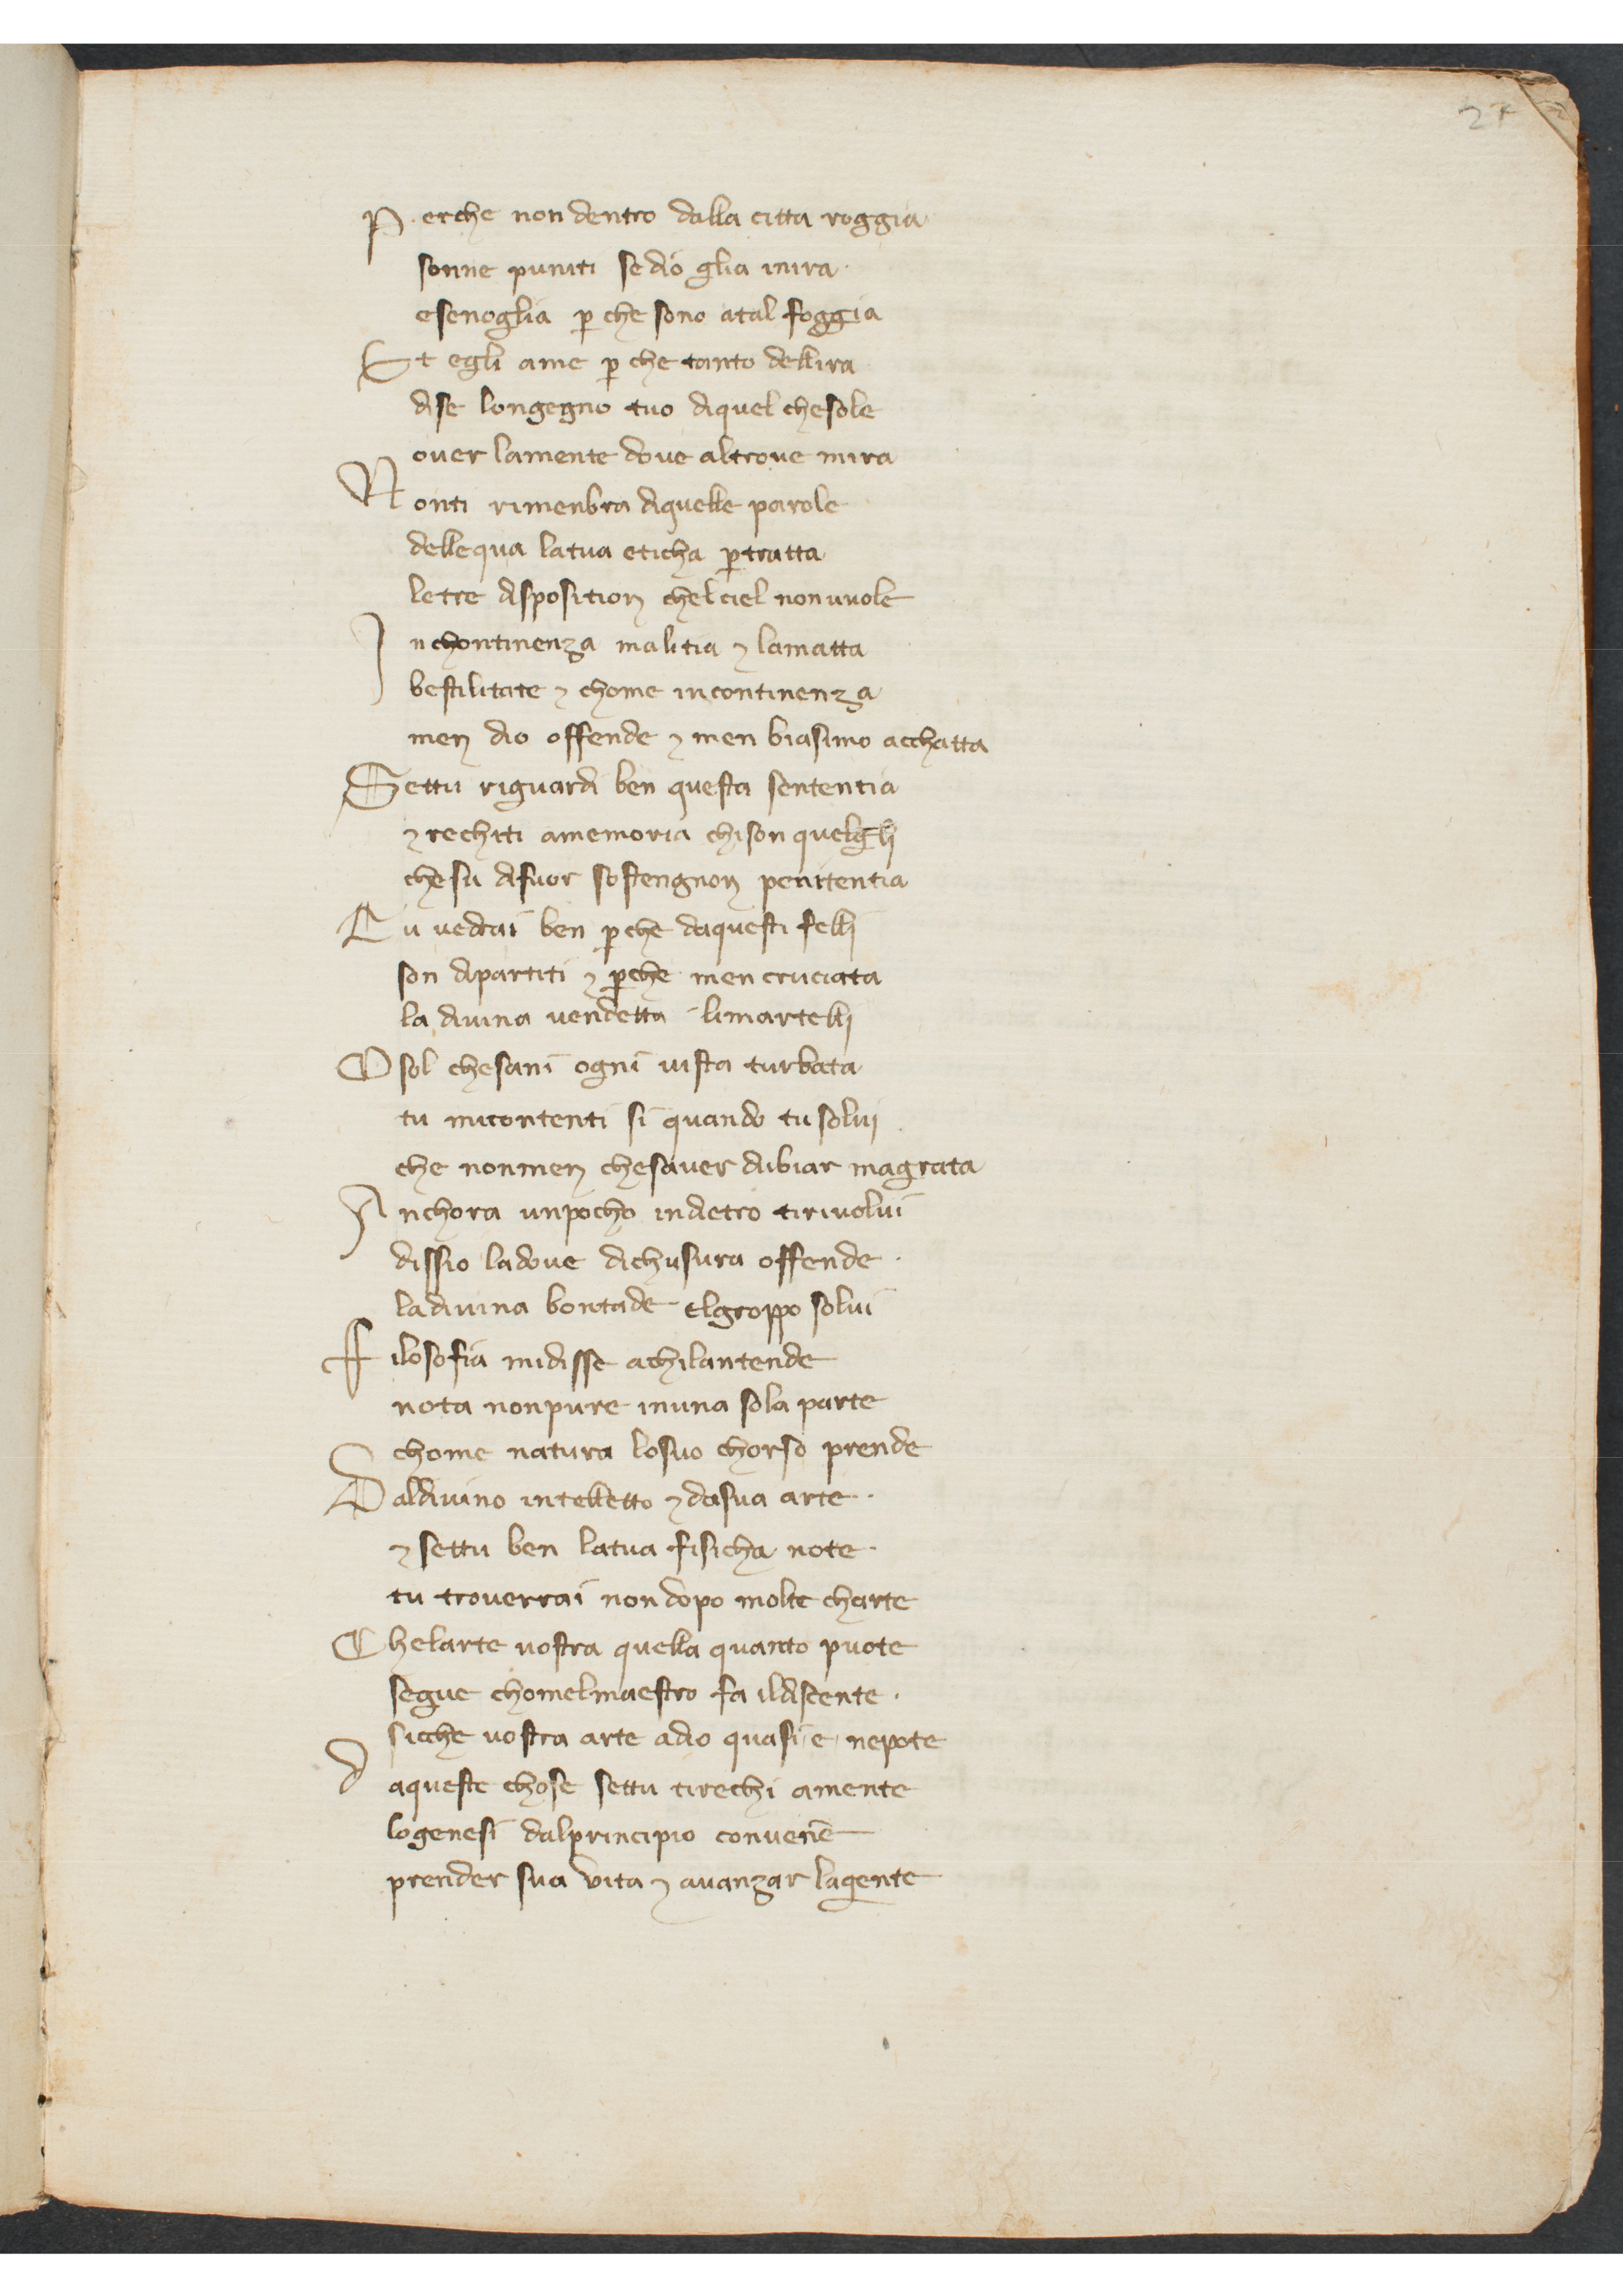 27
P erche non dentro dalla citta roggia
sonne puniti se dio glia inira
esenoglia p che sono atal foggia
Et egli ame p che tanto dellira
dise longegno tuo diquel chesole
over lamente dove altrove mira
Nonti rimenbra diquelle parole
dellequa latua eticha ptratta
letre disposition chelciel nonvuole
Inchontinenza malitia ⁊ lamatta
bestilitate ⁊ chome incontinenza
men dio offende ⁊ men biasimo acchatta
Settu riguardi ben questa sententia
⁊ rechiti amemoria chison quelgli
chesu difuor sostengnon penitentia
Tu vedrai ben p che daquesti felli
son dipartiti ⁊ pche men cruciata
la divina vendetta limartelli
O sol chesani ogni vista turbata
tu micontenti si quando tu solvi
che nonmen chesaver dubiar magrata
Anchora unpocho indietro tirivolvi
dissio ladove dichusura offende
ladivina bontade elgroppo solvi
Filosofia midisse achilantende
nota nonpure inuna sola parte
chome natura losuo chorso prende
Daldivino intelletto ⁊ dasua arte
⁊ settu ben latua fisicha note
tu troverrai non dopo molte charte
Chelarte vostra quella quanto puote
segue chomelmaestro fa ildiscente
sicche vostra arte adio quasi e nepote
d aqueste chose settu tirechi amente
logenesi dalprincipio convenē
prender sua vita ⁊ avanzar lagente